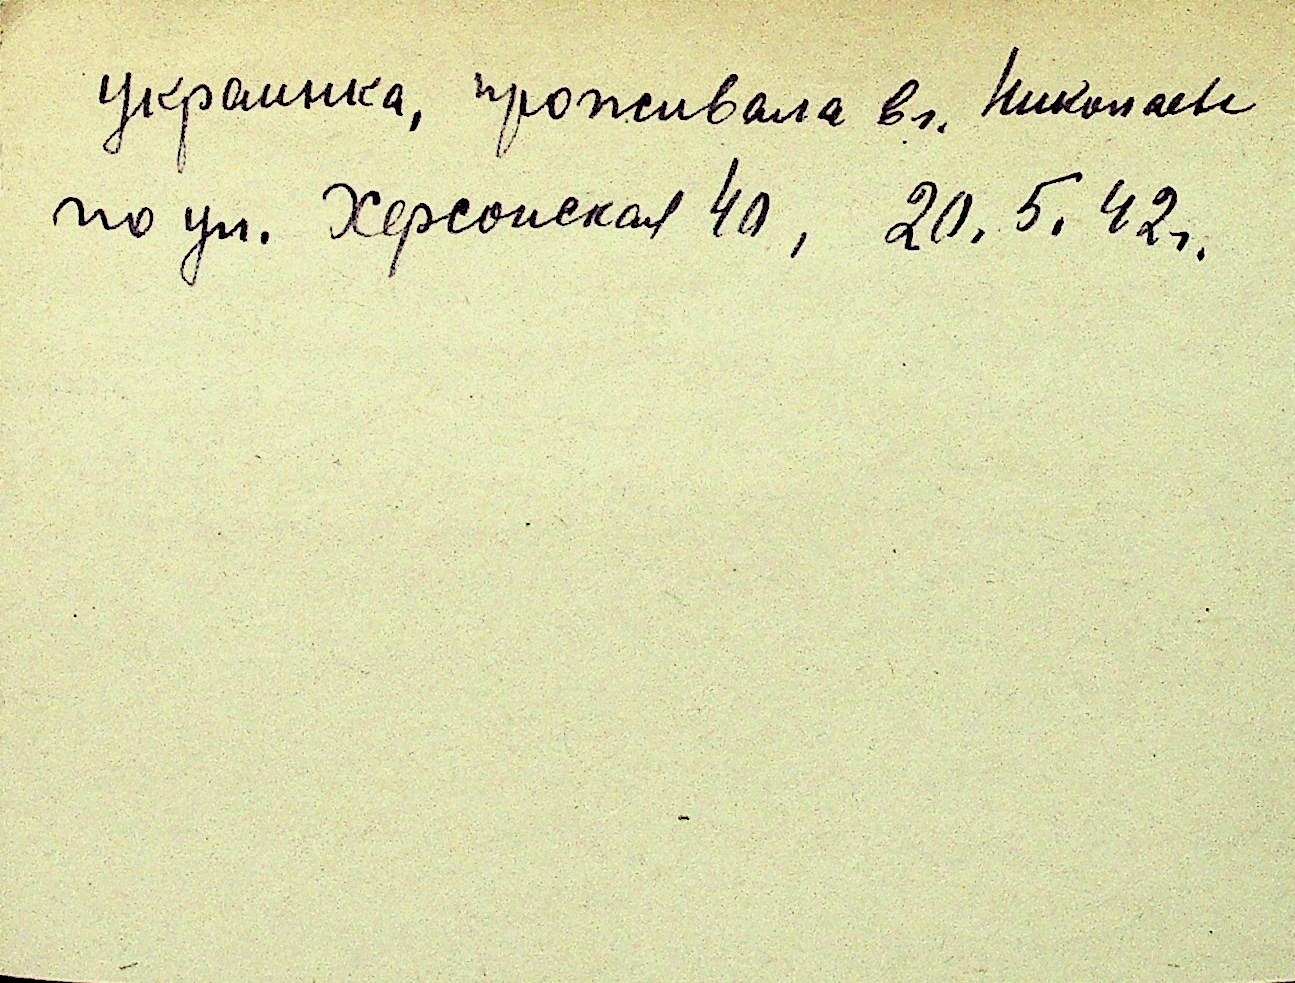 украинка, проживала в г. Николаеве
по ул. Херсонская 40, 20.5.42г.